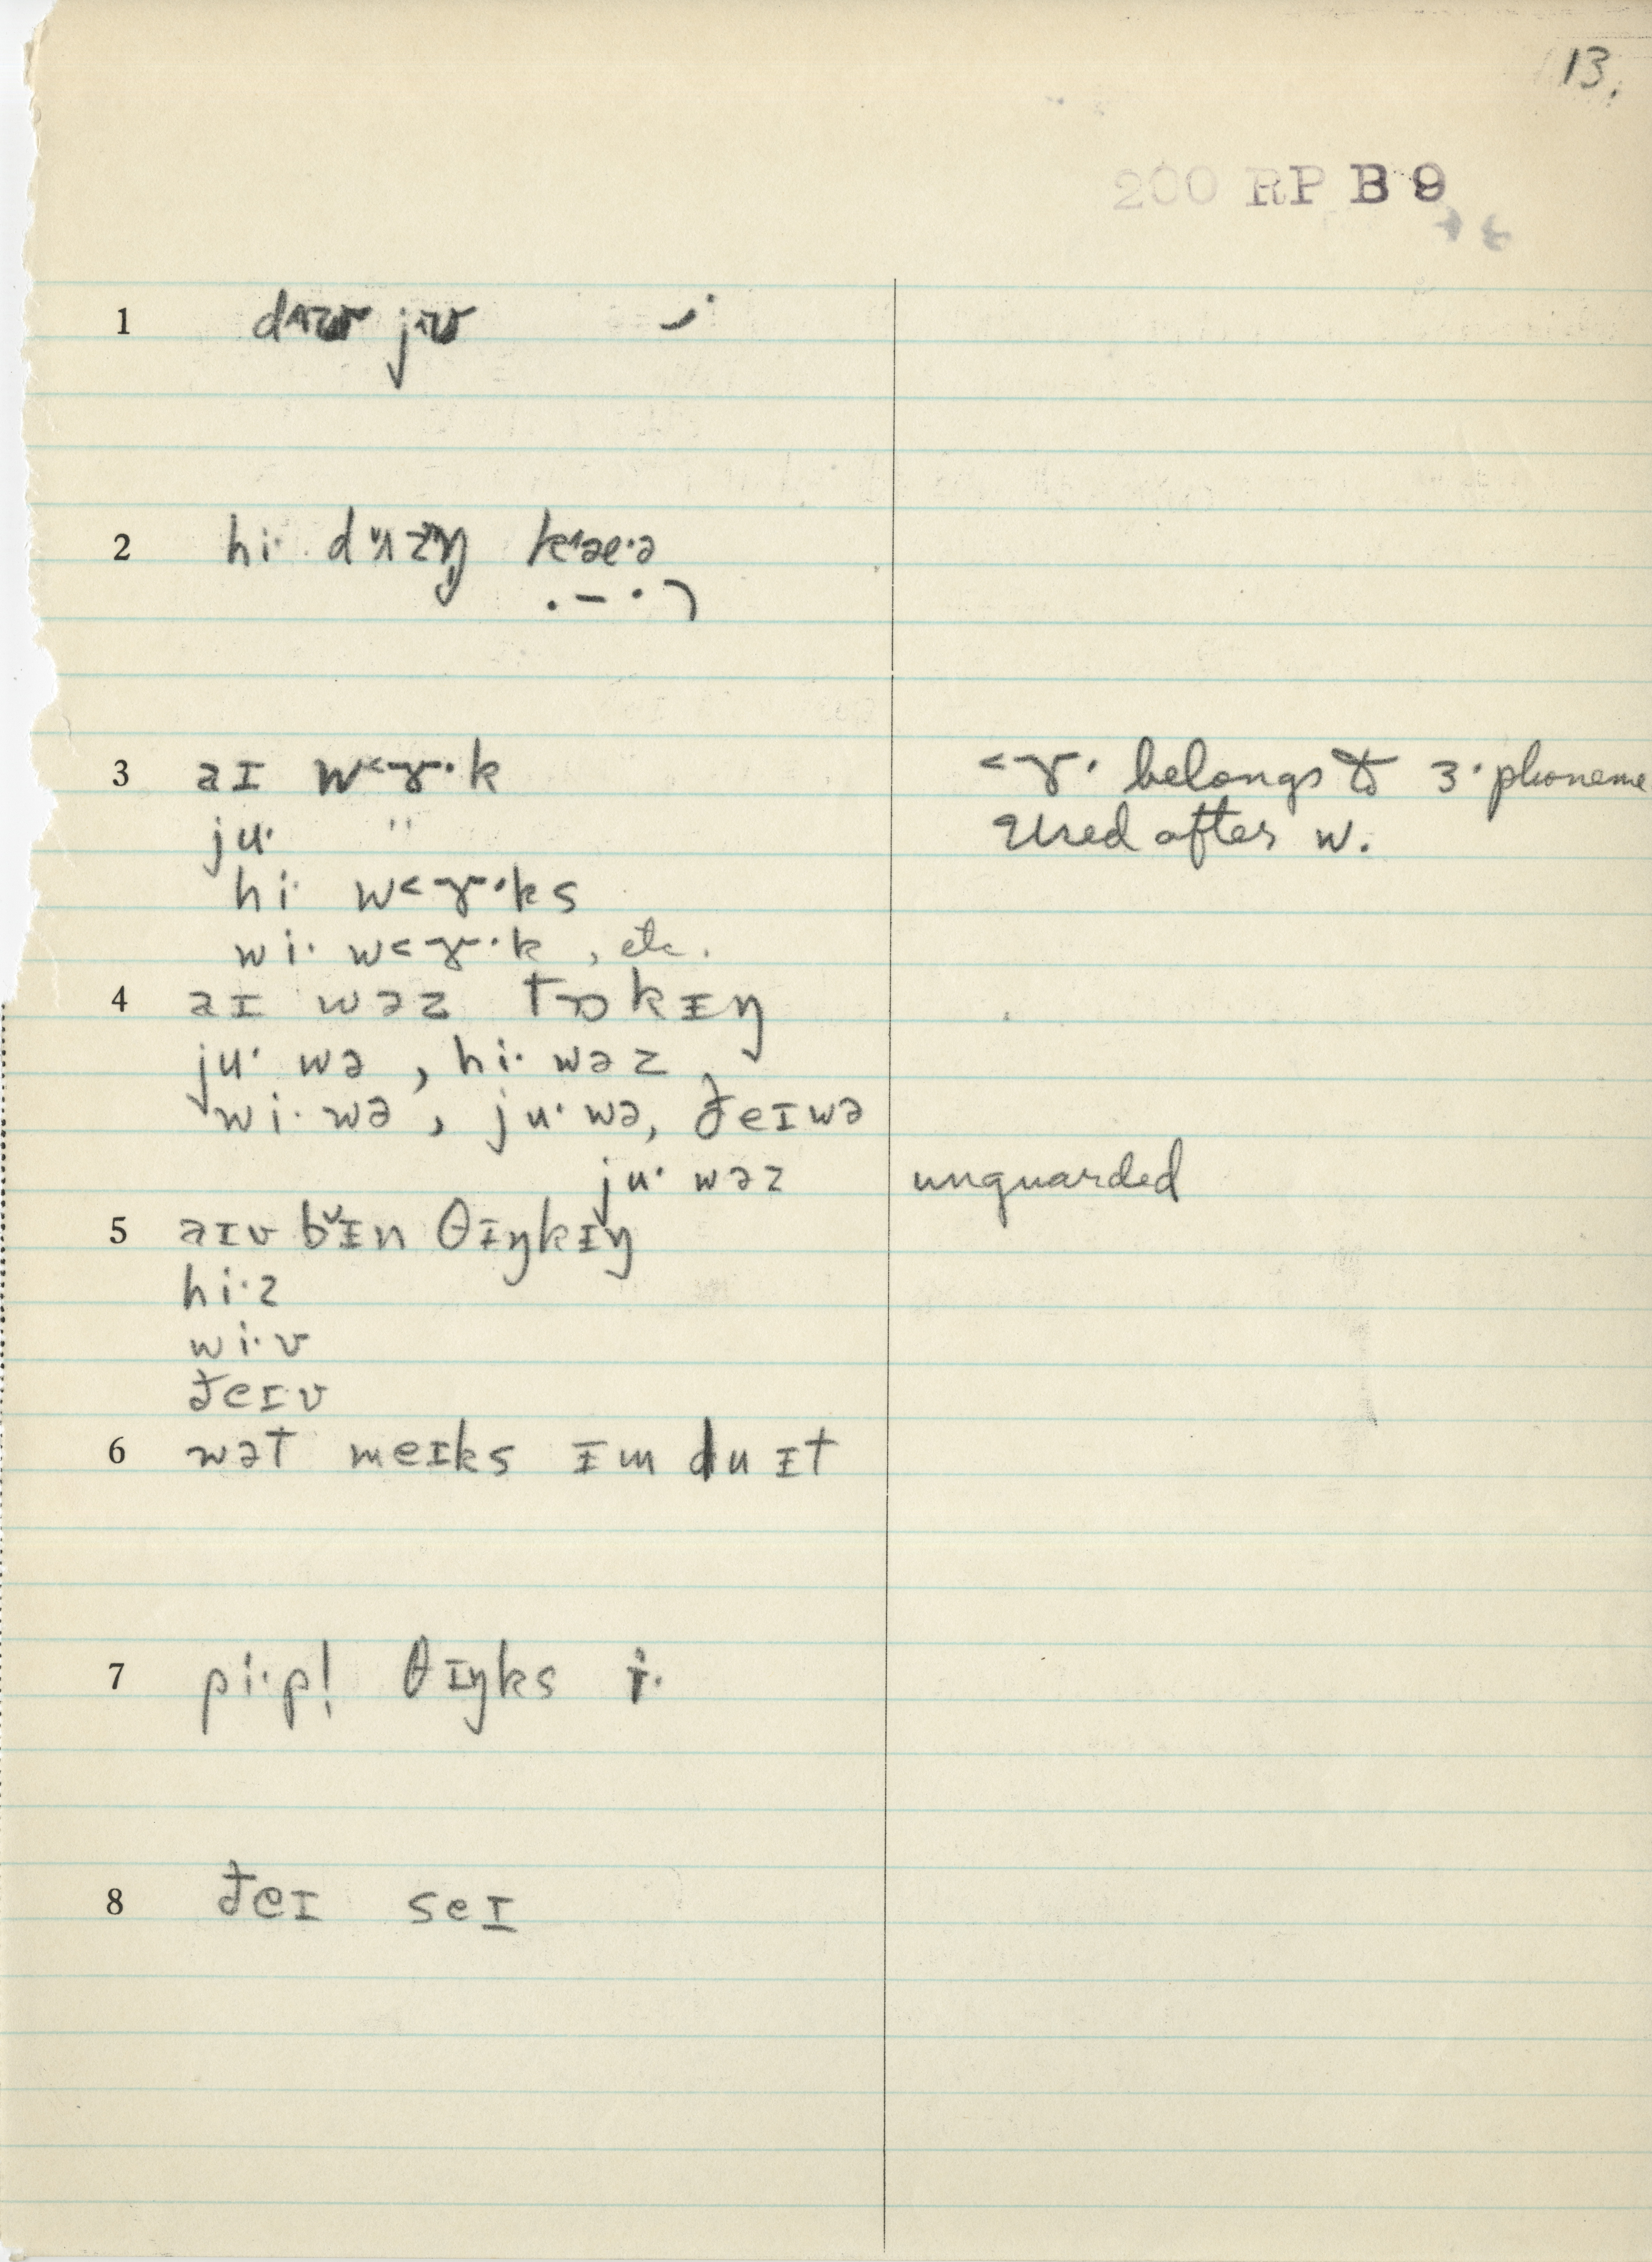 13.
200 RP B 9
1
2 hi·
3 aɪ w<ɤ·k <ɤ· belongs to ɜ· phoneme
ju· " Used after w.
hi· w<ɤ·ks
wi· w<ɤ·k, etc.
4 aɪ wəz tɔkɪŋ
ju· wə, hi· wəz,
wi· wə, ju· wə, ðeɪ wə
ju· wəz unguarded
5 aɪv b̌ɪn θɪŋkɪŋ
hi·z
wi·v
ðeɪv
6 wət meɪks ɪm du ɪt
7 pi·p! θɪŋks i·
8 ðeɪ seɪ